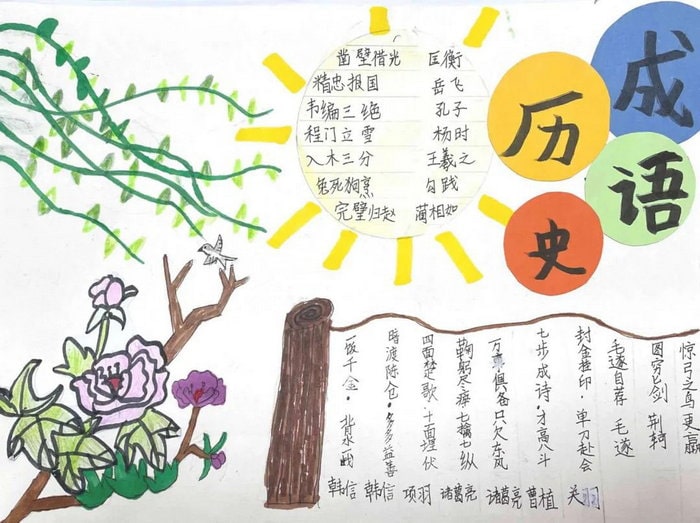 历史成语
凿壁借光 匡衡
精忠报国 岳飞
韦编三绝 孔子
程门立雪 杨时
入木三分 王羲之
兔死狗烹 勾践
完璧归赵 蔺相如
惊弓之鸟 更羸
图穷匕 剑 荆轲
毛遂自荐 毛遂
封金挂印·单刀赴会 关羽
七步成诗·才高八斗 曹植
万 俱备只欠东风 诸葛亮
鞠躬尽瘁 七擒七纵 诸葛亮
四面楚歌·十面埋伏 项羽
暗渡陈仓·多多益善 韩信
饭千金· 韩信